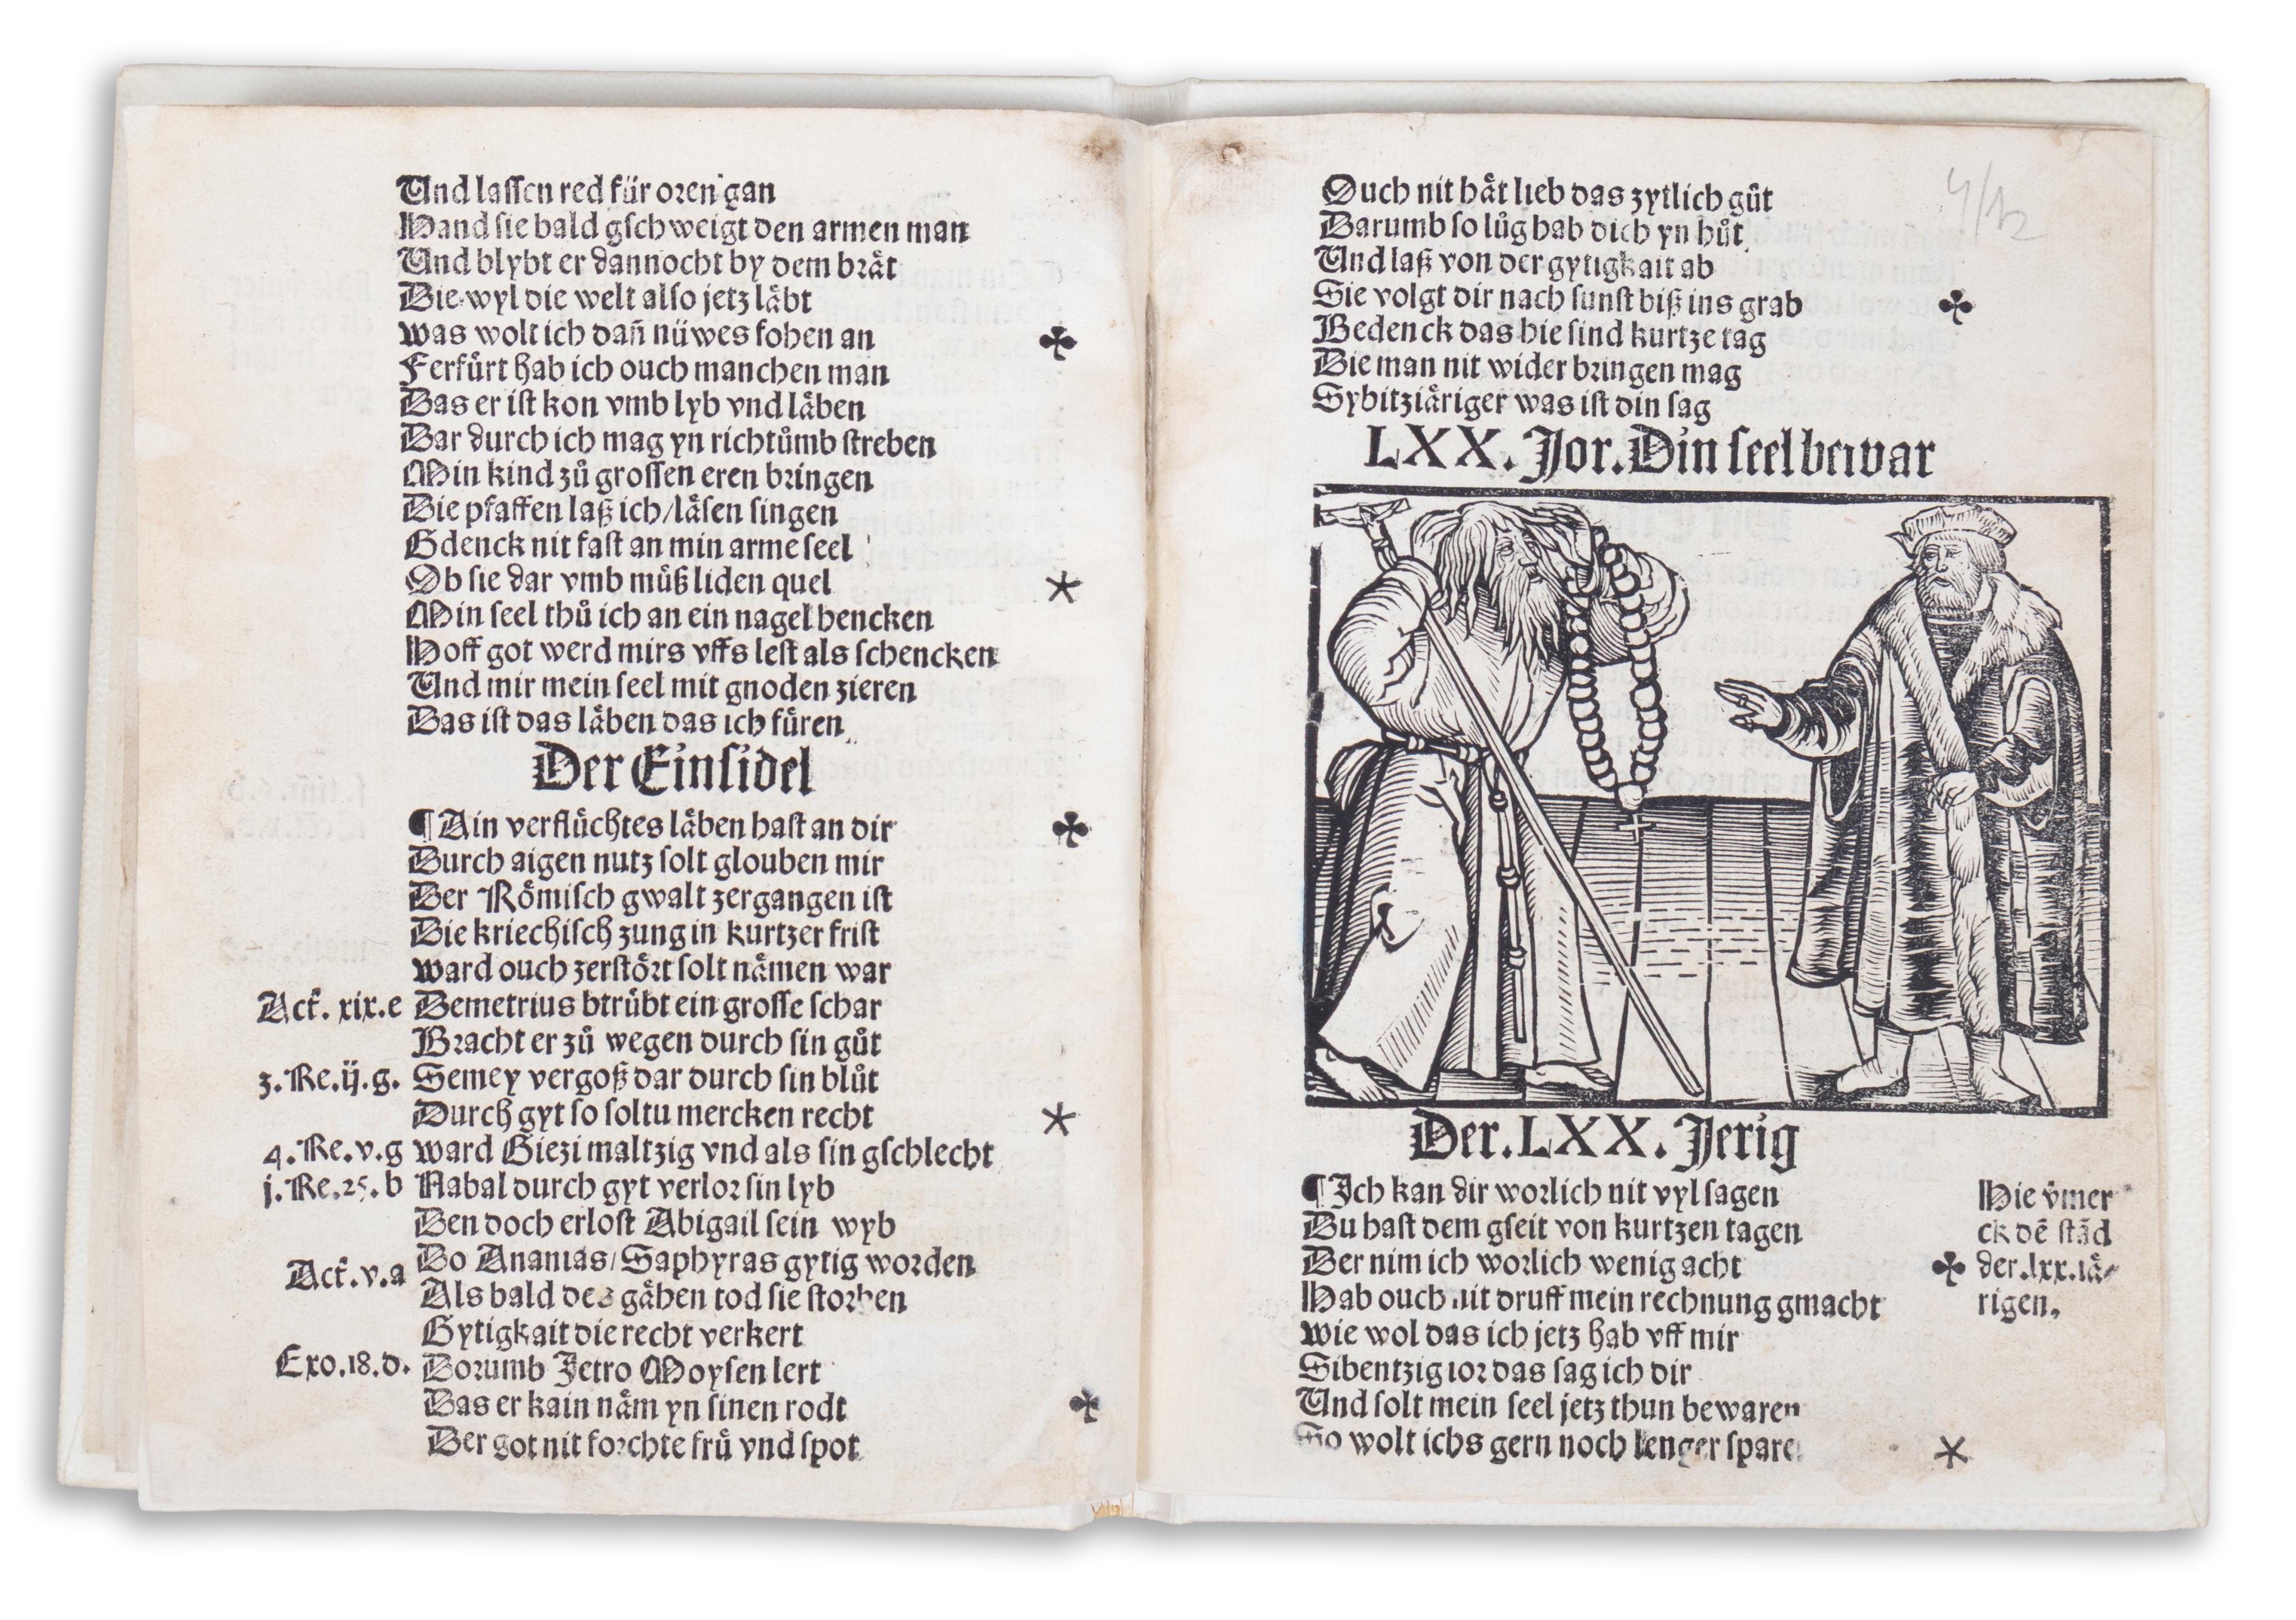 Und lassen red für oren gan
Hand sie bald gschweigt den armen man
Und blybt er dannocht by dem brät
Die wyl die welt also jetz läbt
was wolt ich dañ nüwes fohen an ♣
Ferfürt hab ich ouch manchen man
Das er ist kon vmb lyb vnd läben
Dar durch ich mag yn richtůmb streben
Min kind zů grossen eren bringen
Die pfaffen laß ich/läsen singen
Gdenck nit fast an min arme seel
Ob sie dar vmb můß liden quel *
Min seel thů ich an ein nagel hencken
Hoff got werd mirs vffs lest als schencken
Und mir mein seel mit gnoden zieren
Das ist das läben das ich füren
Der Einsidel
¶Ain verflůchtes läben hast an dir ♣
Durch aigen nutz solt glouben mir
Der Römisch gwalt zergangen ist
Die kriechisch zung in kurtzer frist
ward ouch zerstört solt nämen war
Act. xix.e Demetrius btrübt ein grosse schar
Bracht er zů wegen durch sin gůt
3.Re.ij.g. Semey vergoß dar durch sin blůt
Durch gyt so soltu mercken recht *
4.Re.v.g ward Giezi maltzig vnd als sin gschlecht
j.Re.25.b Nabal durch gyt verlor sin lyb
Den doch erlost Abigail sein wyb
Act.v.a Do Ananias/Saphyras gytig worden
Als bald des gähen tod sie storben
Gytigkait die recht verkert
Exo.18.d. Dorumb Jetro Moysen lert
Das er kain näm yn sinen rodt ♣
Der got nit forchte frů vnd spot
Ouch nit hät lieb das zytlich gůt
Darumb so lůg hab dich yn hůt
Und laß von der gytigkait ab
Sie volgt dir nach sunst biß ins grab ♣
Bedenck das hie sind kurtze tag
Die man nit wider bringen mag
Sybitziäriger was ist din sag
4/12
LXX. Jor. Din seel bewar
Der. LXX. Jerig
¶Ich kan dir worlich nit vyl sagen
Du hast dem gseit von kurtzen tagen
Der nim ich worlich wenig acht ♣
Hab ouch nit druff mein rechnung gmacht
wie wol das ich jetz hab vff mir
Sibentzig ior das sag ich dir
Und solt mein seel jetz thun bewaren
So wolt ichs gern noch lenger spare *
Hie v̄mer
ck dē stād
der.lxx.iä⸗
rigen.